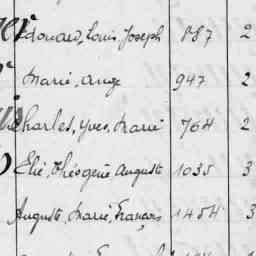 Edouard, Louis, Joseph 887 2
Marie, Ange 947 2
Charles, Yves, Marie 764 2
Elie, Théogène Auguste 1035 3
Auguste, Marie, François 1454 3